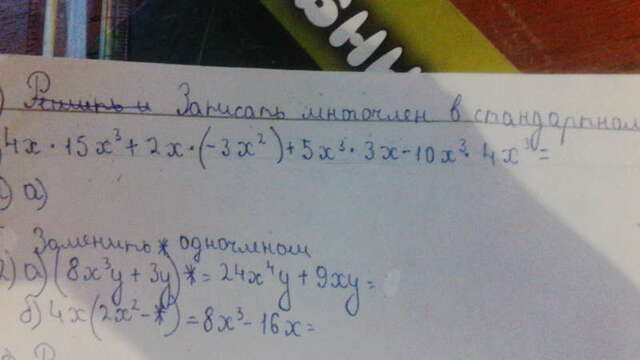 ) Решить и Записать многочлен в стандартном
4x · 15x³ + 2x · (-3x²) + 5x³ · 3x - 10x³ · 4x³ =
1) а)
Заменить * одночленом
2) а) (8x³y + 3y) * = 24x⁴y + 9xy =
б) 4x(2x² - *) = 8x³ - 16x =